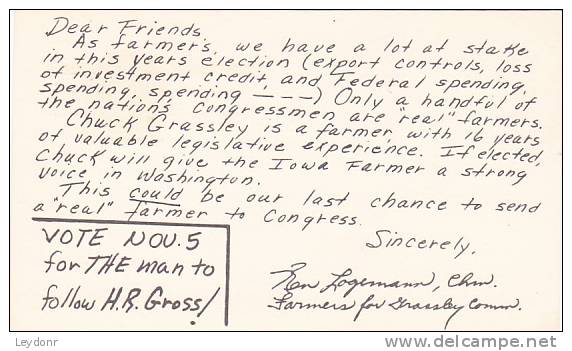 Dear Friends,
As farmers, we have a lot at stake
in this years election (export controls, loss
of investment credit, and Federal spending,
spending, spending - - - -) Only a handful of
the nation's Congressmen are "real" farmers.
Chuck Grassley is a farmer with 16 years
of valuable legislative experience. If elected,
Chuck will give the Iowa Farmer a strong
voice in Washington.
This could be our last chance to send
a "real" farmer to Congress.
Sincerely,
Ken Logemann, Chm.
Farmers for Grassley Comm.
VOTE NOV. 5
for THE man to
follow H.R. Gross!
Leydonr
www.delcampe.net